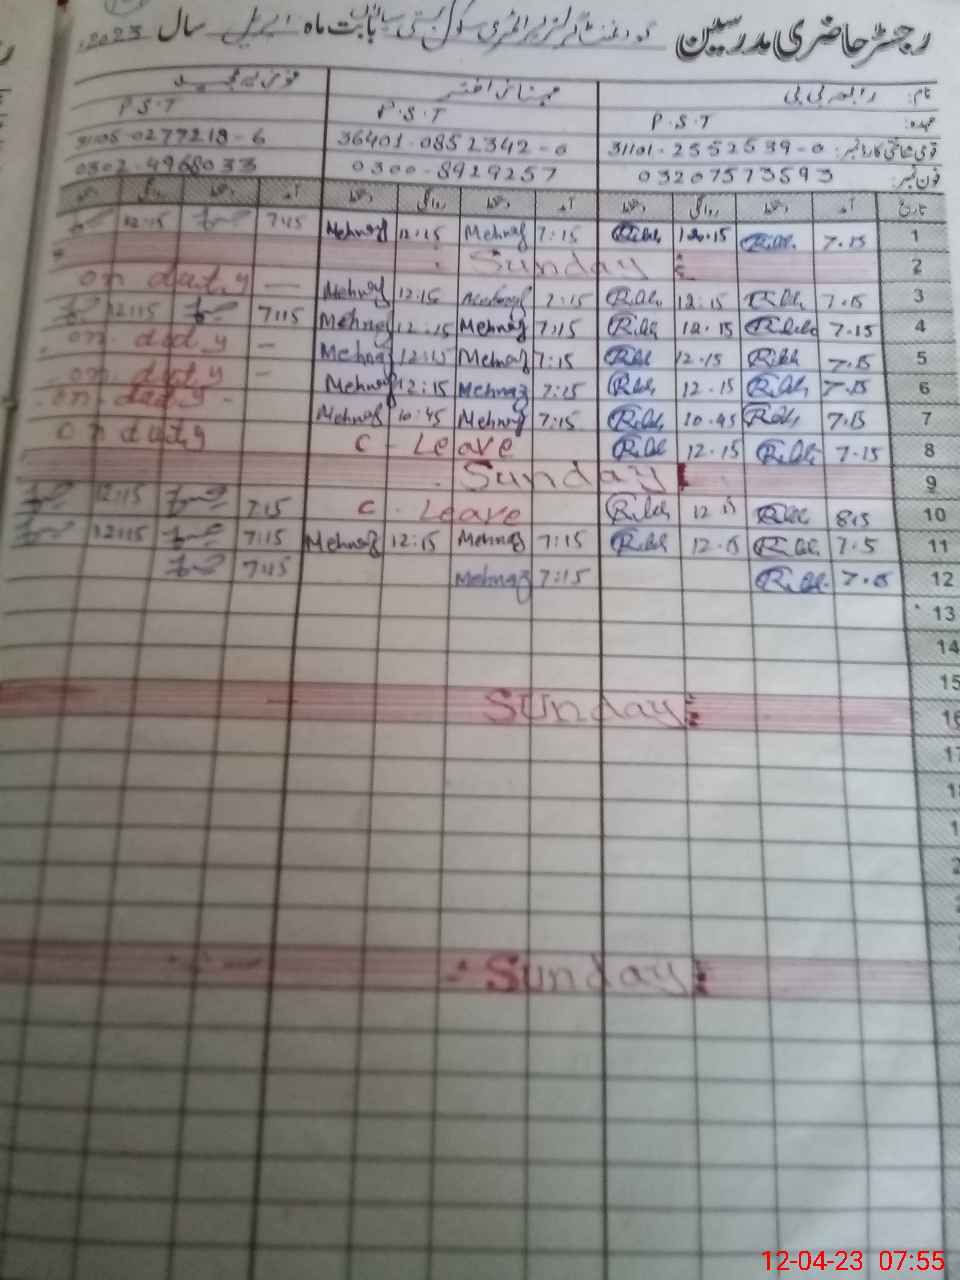 رجسٹر حاضری مدرسین گورنمنٹ گرلز پرائمری سکول بستی بابت ماہ اپریل سال 2023
نام: رابعہ بی بی مہناز اختر
عہدہ: P.S.T P.S.T P.S.T
قومی شناختی کارڈ نمبر: 31101-2552539-0 36401-0852342-0 31105-0277218-6
فون نمبر: 03207573593 0300-8929257 0302-4968033
تاریخ آمد دستخط روانگی دستخط آمد دستخط روانگی دستخط آمد دستخط روانگی دستخط
1 7.15 12.15 7:15 Mehnaz 12:15 Mehnaz 7:15 12:15
2 Sunday
3 7.15 12:15 7:15 Mehnaz 12:15 Mehnaz on duty
4 7.15 12.15 7:15 Mehnaz 12:15 Mehnaz 7:15 12:15
5 7.15 12.15 7:15 Mehnaz 12:15 Mehnaz on duty
6 7.15 12.15 7:15 Mehnaz 12:15 Mehnaz on duty
7 7.15 10.45 7:15 Mehnaz 10:45 Mehnaz on duty
8 7.15 12.15 C. Leave on duty
9 Sunday
10 8:15 12 15 C. Leave 7:15 12:15
11 7.5 12.15 7:15 Mehnaz 12:15 Mehnaz 7:15 12:15
12 7.15 7:15 Mehnaz 7:15
13
14
15
16 Sunday
17
Sunday
12-04-23 07:55